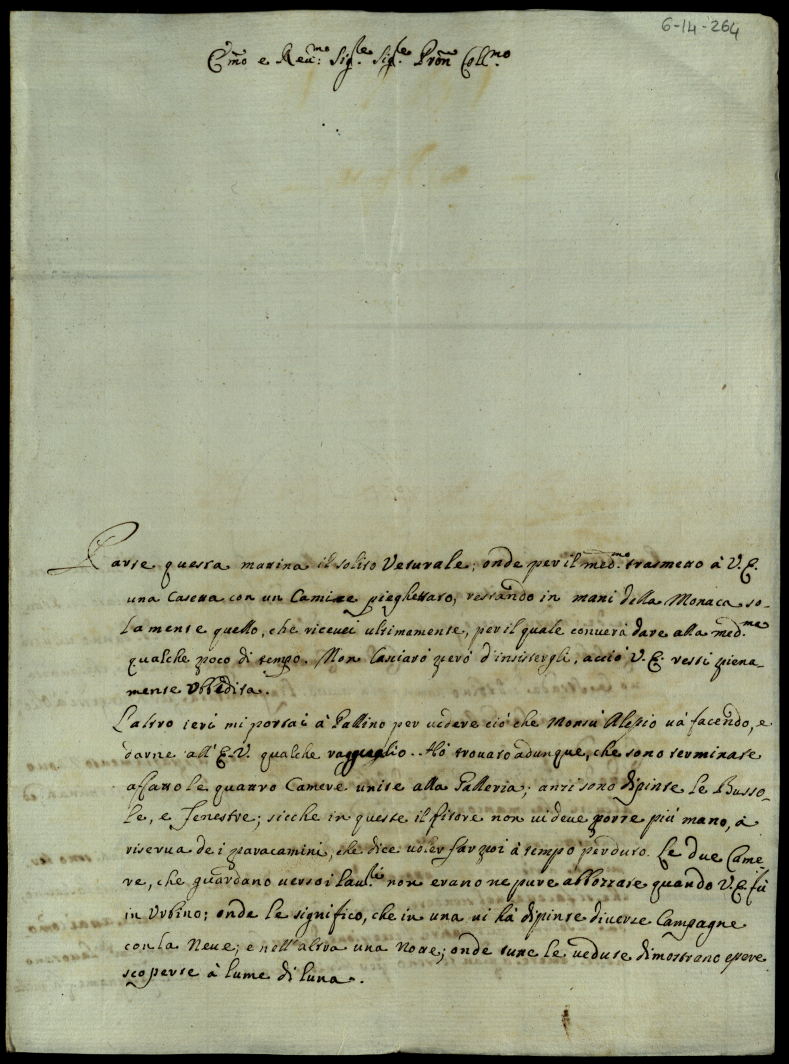 6-14-264
Em̃o e Reu:mo Sig.re Sig.re Pron̄ Coll.mo
Parte questa matina il solito Veturale; onde per il med.mo trasmetto à V.E.
una Casetta con un Camice pieghettato, restando in mani della Monaca so-
lamente quello, che ricevei ultimamente, per il quale converà dare alla med.ma
qualche poco di tempo. Non lasciarò però d'insistergli, acciò V.E. resti piena-
mente Vbbedita.
L'altro ieri mi portai à Gallino per vedere ciò che Monsù Alesio và facendo, e
darne all'E.V. qualche ragguaglio. Hò trovato adunque, che sono terminate
affatto le quattro Camere unite alla Galleria; anzi sono dipinte le Busso-
le, e fenestre; sicche in queste il Pitore non vi deve porre più mano, à
riserva de i paracamini, che dice voler far poi à tempo perduto. Le due Came-
re, che guardano verso i Paul.li non erano ne pure abbozzate quando V.E. fù
in Vrbino; onde le significo, che in una vi hà dipinte diverse Campagne
con la Neve; e nell'altra una Notte; onde tutte le vedute dimostrano essere
scoperte à lume di luna.